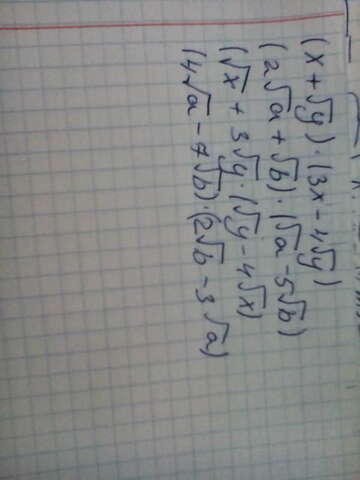 (x + √y) · (3x - 4√y)
(2√a + √b) · (√a - 5√b)
(√x + 3√y · (√y - 4√x)
(4√a - 7√b) · (2√b - 3√a)